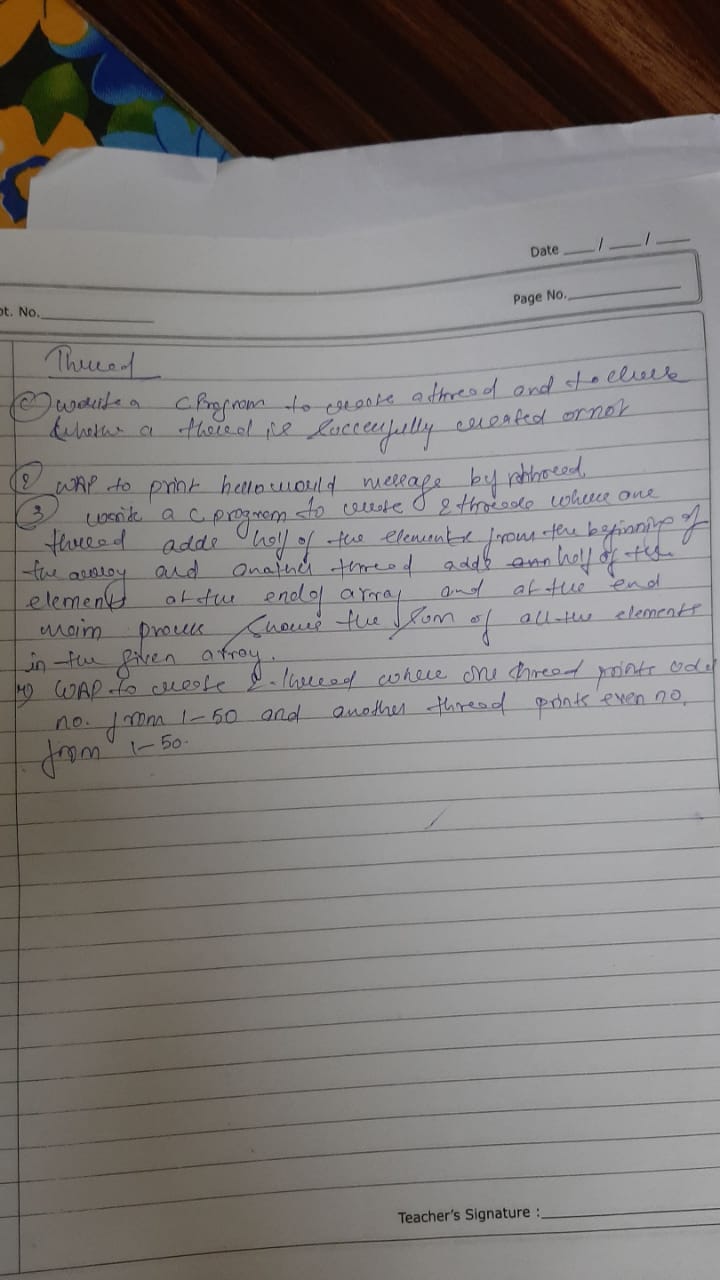 Date __/__/__
pt. No.
Page No.
Thread
write a C Program to create a thread and to check
whether a thread is successfully created or not
2 WAP to print hello world message by thread
3 write a c program to create 2 threads where one
thread adds half of the elements from the beginning of
the array and another thread adds half of the
elements at the end of array and at the end
main process shows the sum of all the elements
in the given array.
4) WAP to create 2 thread where one thread prints odd
no. from 1-50 and another thread prints even no.
from 1-50.
Teacher's Signature :